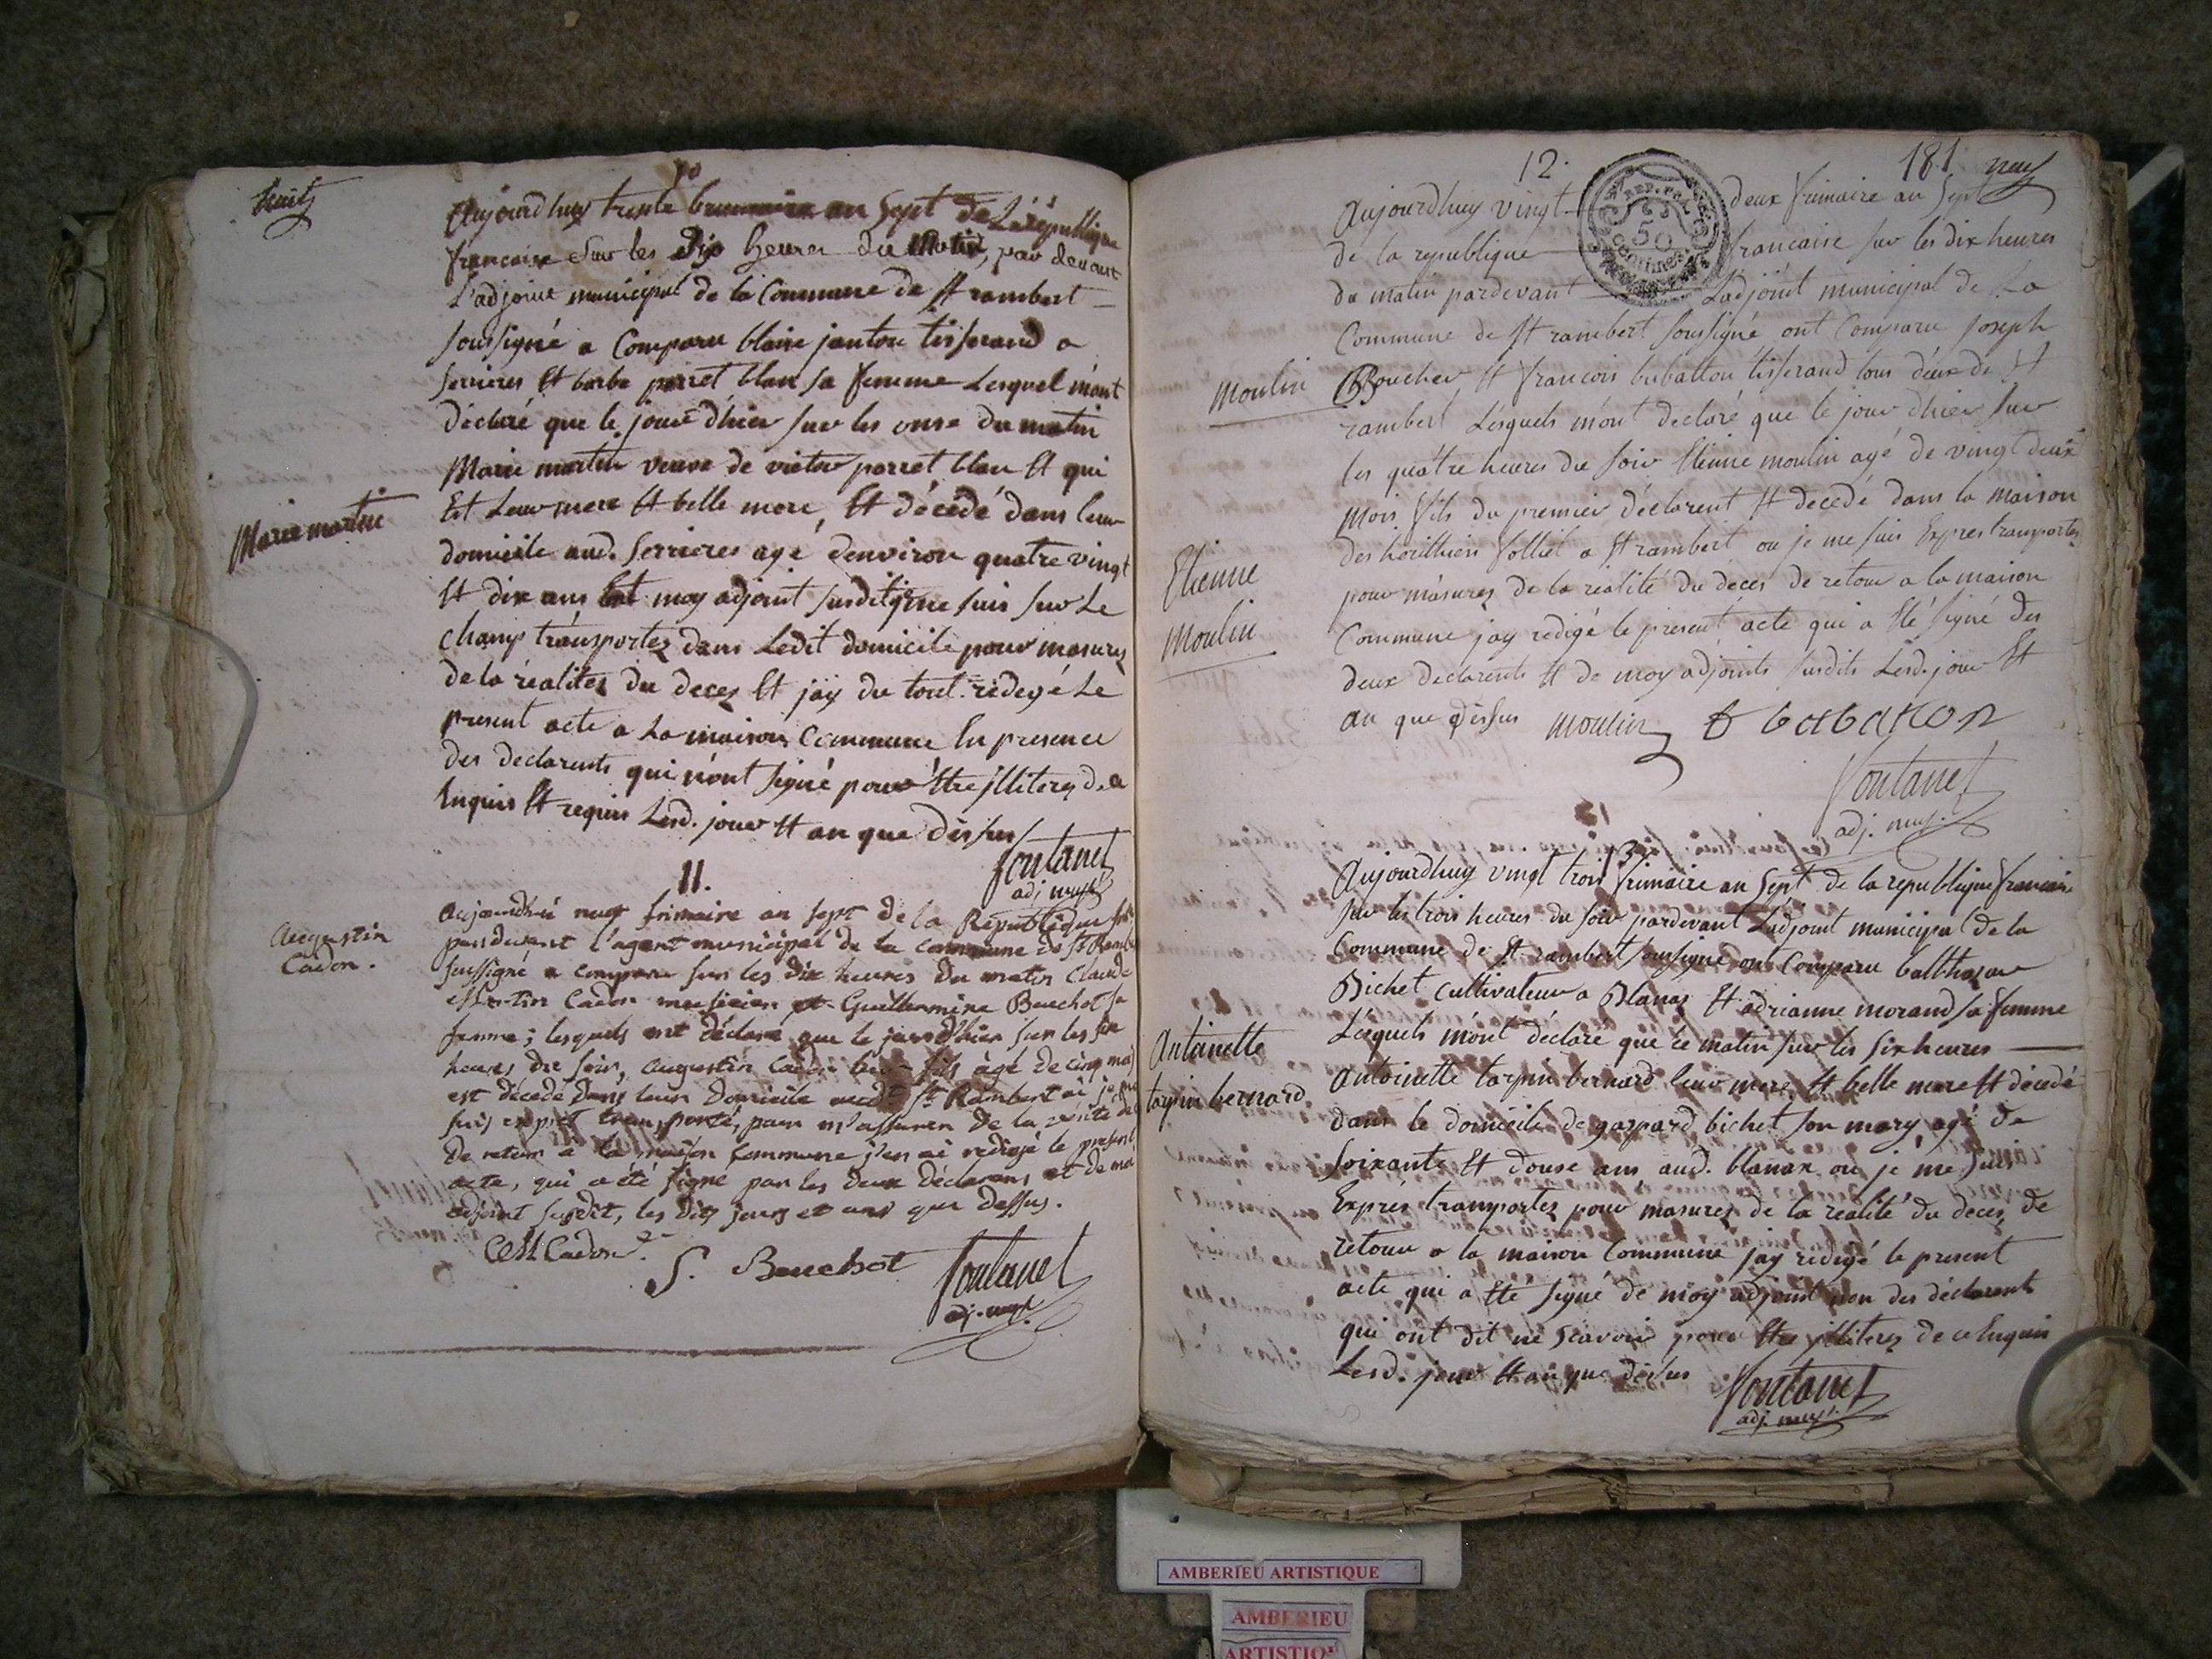 huit
10
Aujourdhuy trente brumaire an Sept de La république
francaise Sur les dix heures du Matin, par devant
L'adjoint municipal de la Commune de St rambert
soussigné a Comparu blaise jantou tisserand a
serrieres Et barbe perret blan sa femme Lesquel m'ont
déclaré que le jour d'hier sur les onse du matin
Marie martin veuve de victor perret blan Et qui
Est Leur mere Et belle mere, Et décédé dans leur
Marie martin
domicile aud. Serrieres agé denviron quatre vingt
Et dix ans Et moy adjoint susdit me suis sur Le
champ transportez dans Ledit domicile pour masurez
de la réalitez du decez Et jay du tout redegé Le
present acte a La maison Commune En presence
des declarents qui n'ont signé pour Etre illiterez de ce
Enquis Et requis Lesd. jour Et an que dessus
fontanel
adj. mupl
11.
Augustin
Cadon.
Aujourdhui neuf frimaire an sept de la République
pardevant l'agent municipal de la commune de St Rambert
soussigné a comparu sur les dix heures du matin Claude
Cadon musicien et Guillermine Bouchot sa
femme; lesquels ont déclaré que le jour d'hier sur les six
heures du soir, Augustin Cadon leur fils âgé de cinq mois
est décédé dans leur domicile audt St Rambert où je me
suis exprès transporté, pour m'assurer de la vérité
De retour a la maison Commune j'en ai redigé le present
acte, qui a été signé par les deux déclarans et de moi
adjoint susdit, les dits jours et ans que dessus.
Cadon
Bouchot
fontanel
adj. mupl
12.
181
neuf
REP. FRA.
50
CENTIMES
Aujourdhuy vingt deux frimaire an Sept
de la republique francaise sur les dix heures
du matin pardevant Ladjoint municipal de La
Commune de St rambert soussigné ont Comparu joseph
moulin
Boucher Et francois babatton tisserand tous deux de St
rambert Lesquels m'ont declaré que le jour dhier sur
les quatre heures du soir Etienne moulin agé de vingt deux
mois fils du premier déclarent Et decedé dans la maison
des héritiers folliet a St rambert ou je me suis Expres transportez
Etienne
moulin
pour masurez de la réalité du deces de retour a la maison
Commune jay redigé le present acte qui a Eté signé des
deux declarents Et de moy adjoints susdits Lesd. jour Et
an que dessus moulin f babaton
fontanel
adj. mup.
13
Aujourdhuy vingt trois frimaire an Sept de la republique francaise
sur les trois heures du soir pardevant Ladjoint municipal de la
Commune de St rambert soussigné ont Comparu balthazar
Bichet cultivateur a Blanaz Et adrianne morand sa femme
Lesquels m'ont déclaré que ce matin sur les six heures
Antoinette
tarpin bernard
Antoinette tarpin bernard leur mere Et belle mere Et décedé
dans le domicile de gaspard bichet son mary, agé de
soixante Et douse ans aud. blanax ou je me suis
Exprés transportez pour masurez de la réalité du deces, de
retour a la maison Commune jay redigé le present
acte qui a Eté signé de moy adjoint non des déclarents
qui ont dit ne scavoir pour Etre illiterez de ce Enquis
Lesd. jour Et an que dessus
fontanel
adj. mup.
AMBERIEU ARTISTIQUE
AMBERIEU
ARTISTIQUE